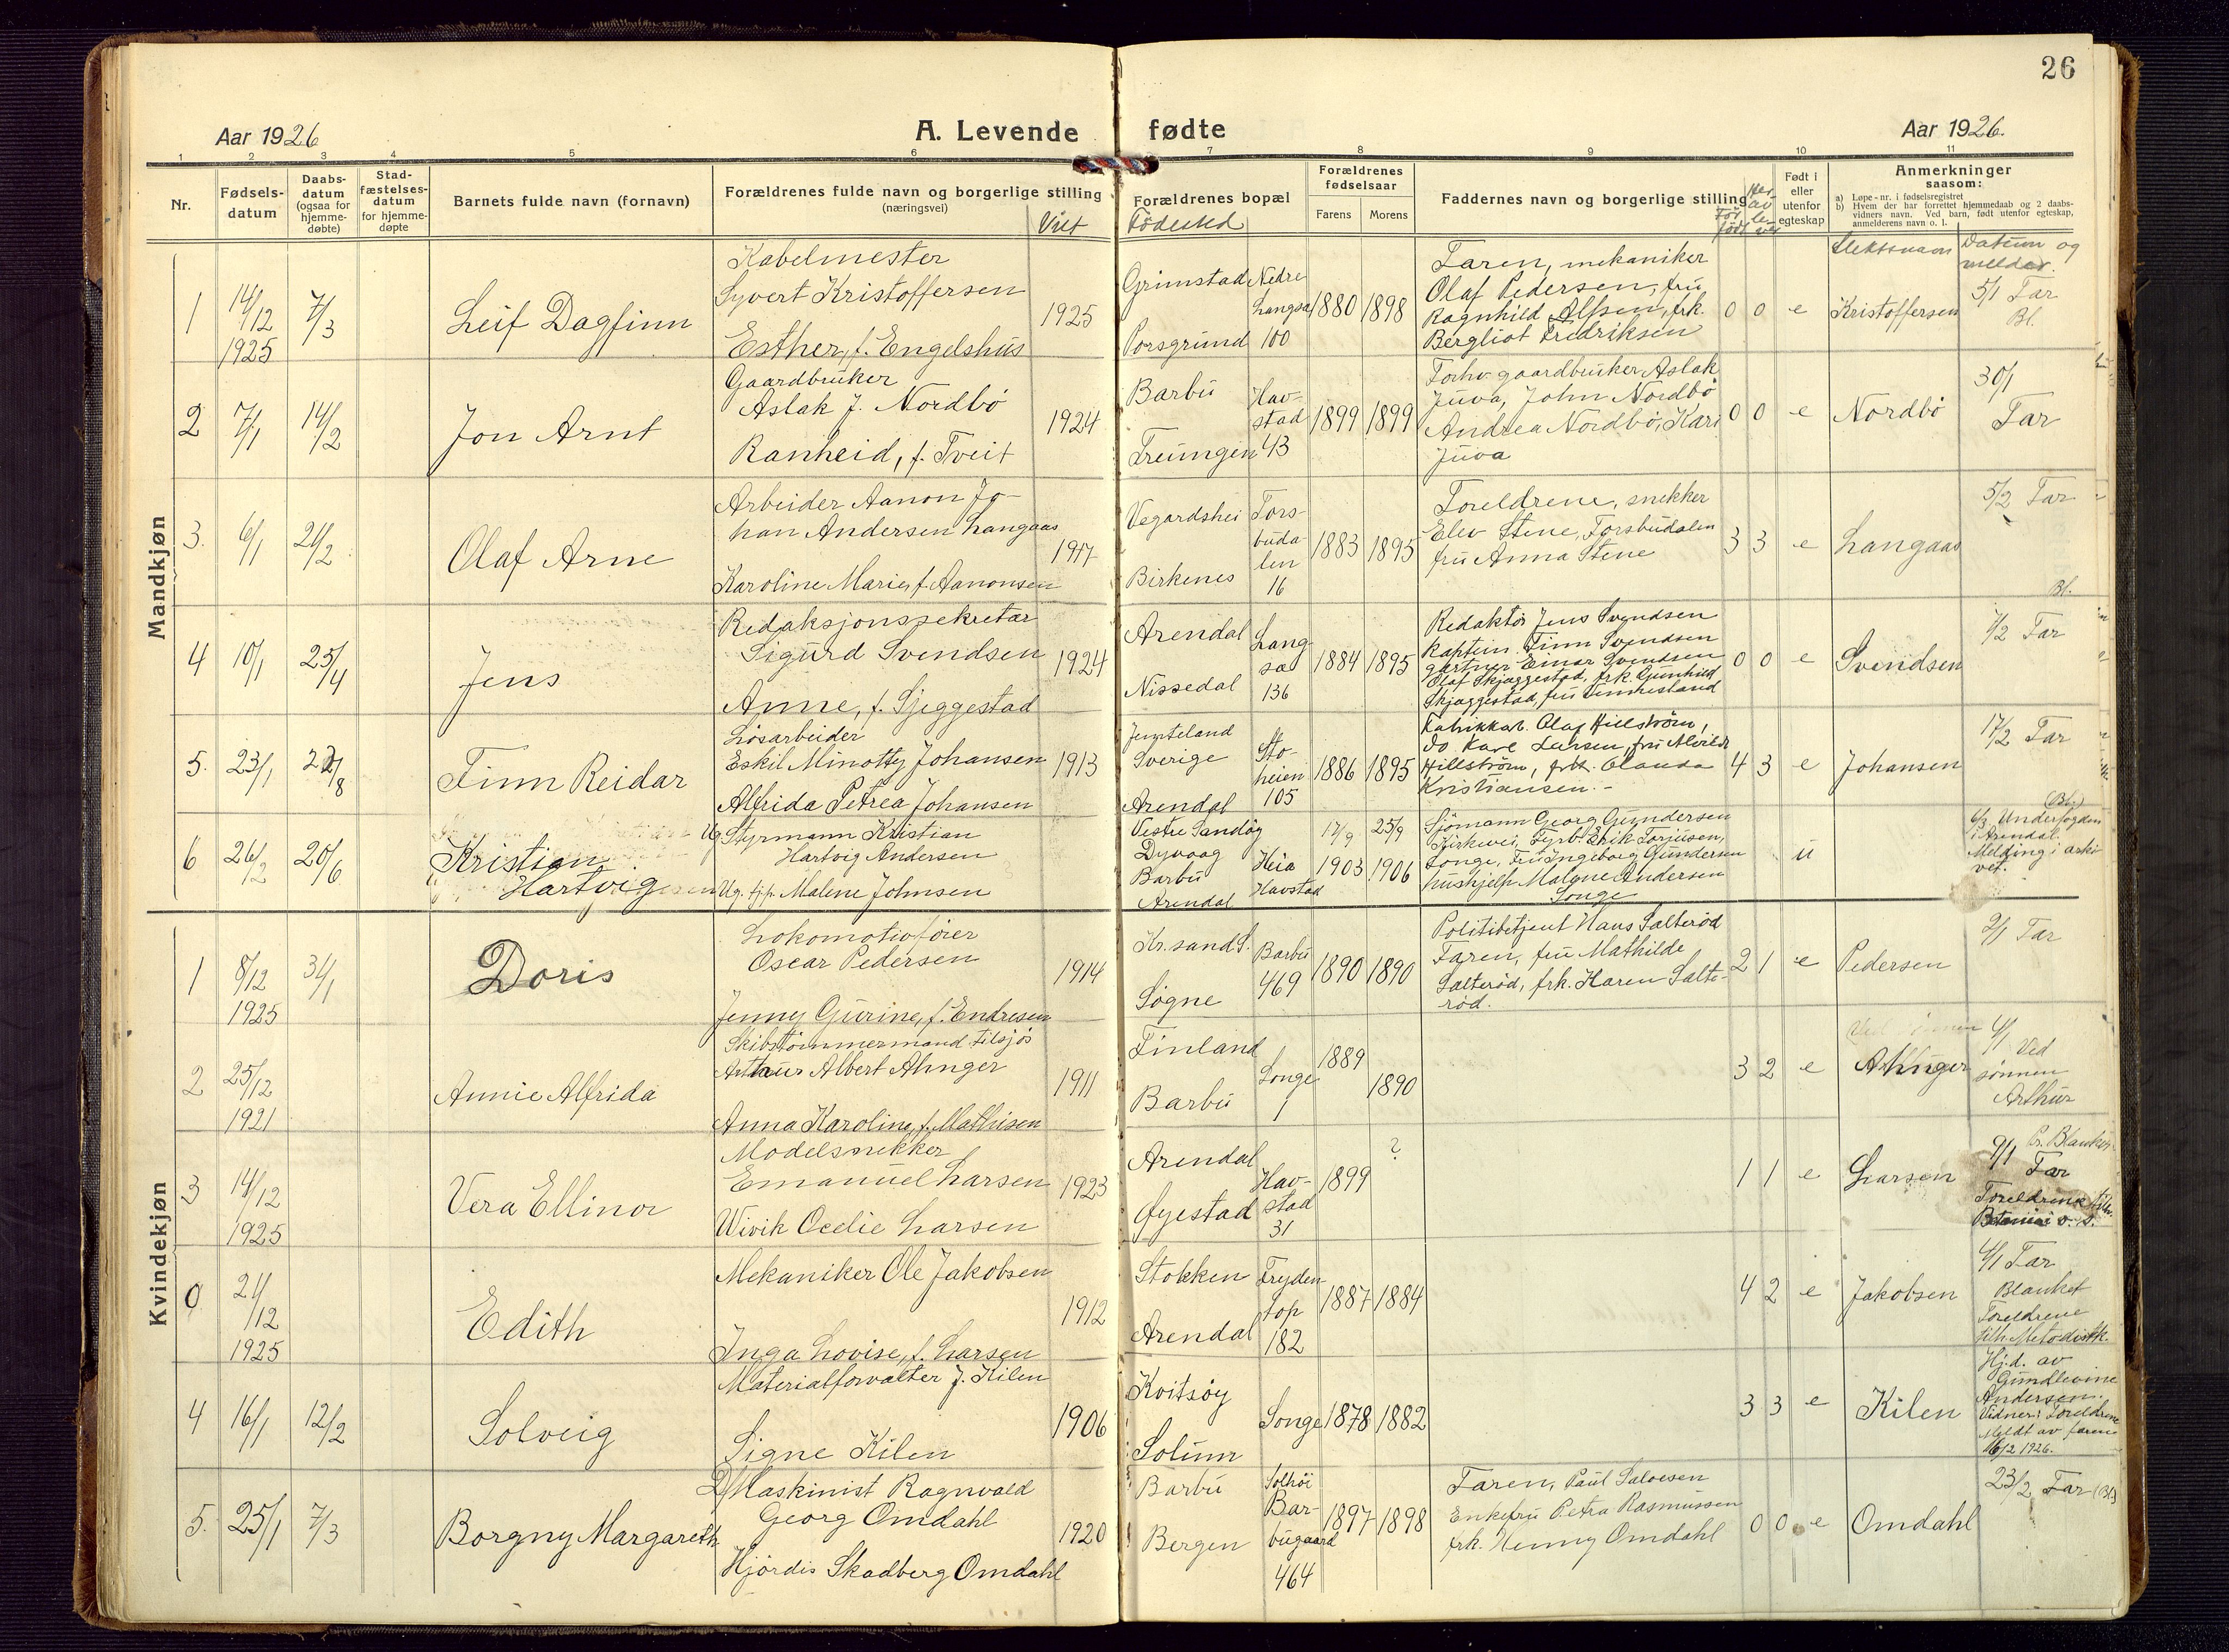 26
Aar 1926
A. Levende fødte
Aar 1926.
1 2 3 4 5 6 7 8 9 10 11
Nr.
Fødsels-
datum
Daabs-
datum
(ogsaa for
hjemme-
døbte)
Stad-
fæstelses-
datum
for hjemme-
døpte
Barnets fulde navn (fornavn)
Forældrenes fulde navn og borgerlige stilling
(næringsvei)
Viet
Forældrenes bopæl
Födested
Forældrenes
fødselsaar
Farens
Morens
Faddernes navn og borgerlige stilling
Før
født
Her
av
lever
Født i
eller
utenfor
egteskap
Anmerkninger
saasom:
a) Løpe-nr. i fødselsregistret
b) Hvem der har forrettet hjemmedaab og 2 daabs-
vidners navn. Ved barn, født utenfor egteskap,
anmelderens navn o. l.
Slektsnavn
Datum og
melder.
Mandkjøn
1
14/12
1925
7/3
Leif Dagfinn
Kabelmester
Syvert Kristoffersen
Esther, f. Engelshus
1925
Grimstad
Porsgrund
Nedre
Langsæ
100
1880
1898
Faren, mekaniker
Olaf Pedersen, fru
Ragnhild Alfsen, frk.
Bergliot Fredriksen
0 0 e
Kristoffersen
5/1 Far
Bl.
2
7/1
14/2
Jon Arnt
Gaardbruker
Aslak J. Nordbö
Ranheid, f. Tveit
1924
Barbu
Treungen
Hav-
stad
43
1899
1899
Forhv. gaardbruker Aslak
Juva, John Nordbö
Andrea Nordbö, Kari
Juva
0 0 e
Nordbö
30/1
Far
3.
6/1
21/2
Olaf Arne
Arbeider Aanon Jo-
han Andersen Langaas
Karoline Marie, f. Aanonsen
1917
Vegardshei
Birkenes
Fors-
buda-
len
16
1883
1895
Foreldrene, snekker
Elev Stene, Forsbudalen
fru Anna Stene
3 3 e
Langaas
5/2 Far
Bl.
4
10/1
25/4
Jens
Redaksjonssekretær
Sigurd Svendsen
Anne, f. Sjeggestad
1924
Arendal
Nissedal
Lang-
sæ
136
1884
1895
Redaktör Jens Svendsen
Kaptein Finn Svendsen
gartner Einar Svendsen
Olaf Skjæggestad, frk. Gunhild
Skjæggestad, fru
0 0 e
Svendsen
7/2 Far
5.
23/1
22/8
Finn Reidar
Lösarbeider
Eskil Minotty Johansen
Alfrida Petrea Johansen
1913
Jemteland
Sverige
Arendal
Sto-
heien
105
1886
1895
Fabrikkarb. Olaf Hillström,
do Karl Larsen, fru Alvilde
Hillström, frk. Clauda
Kristiansen.-
4 3 e
Johansen
17/2 Far
(Bl.)
6
26/2
20/6
Kristian
Hartvig
Ug. Styrmann Kristian
Hartvig Andersen
Ug. tjp. Malene Johnsen
Vestre Sandöy
Dyvaag
Barbu
Arendal
Heia
Havstad
17/9
1903
25/9
1906
Sjömann Georg Gundersen
Kirkevei, Fyrb. Erik Torjusen,
Longe, Fru Ingeborg Gundersen
hushjelp Malene Andersen
Songe
u
6/3 Underfogden
i Arendal.
Melding i arki-
vet.
Kvindekjøn
1
8/12
1925
31/1
Doris
Lokomotivförer
Oscar Pedersen
Jenny Gurine, f. Endresen
1914
Kr.sand S.
Sögne
Barbu
469
1890
1890
Politibetjent Hans Salteröd
Faren, fru Mathilde
Salteröd, frk. Haren Salte-
röd.
2 1 e
Pedersen
9/1 Far
2
25/12
1921
Annie Alfrida
Skibstömmermand tilsjös
Arthur Albert Ahnger
Anna Karoline, f. Mathisen
1911
Finland
Barbu
Songe
1
1889
1890
3 2 e
Ahnger
4/1 Ved
sönnen
Arthur
3
14/12
1925
Vera Ellinor
Modelsnekker
Emanuel Larsen
Wivik Ocelie Larsen
1923
Arendal
Öyestad
Hav-
stad
31
1899
?
1 1 e
Larsen
9/1 Pr. Blanket
Far
Foreldrene tilh.
Betania o. s.
0
21/12
1925
Edith
Mekaniker Ole Jakobsen
Inga Lovise, f. Larsen
1912
Stokken
Arendal
Fryden-
top
182
1887
1884
4 2 e
Jakobsen
4/1 Far
Blanket
Foreldrene
tilh. Metodistk.
4
16/1
12/2
Solveig
Materialforvalter J. Kilen
Signe Kilen
1906
Kvitsöy
Solum
Songe
1878
1882
3 3 e
Kilen
Hj.d. av
Gundlevine
Andersen.
Vidner: Foreldrene
Meldt av faren
16/2 1926.
5.
25/1
7/3
Borgny Margareth
Maskinist Ragnvald
Georg Omdahl
Hjördis Skadberg Omdahl
1920
Barbu
Bergen
Solhöi
Bar-
bugaard
464
1897
1898
Faren, Paul Salvesen
Enkefru Petra Rasmussen
frk. Henny Omdahl
0 0 e
Omdahl
23/2 Far (Bl.)